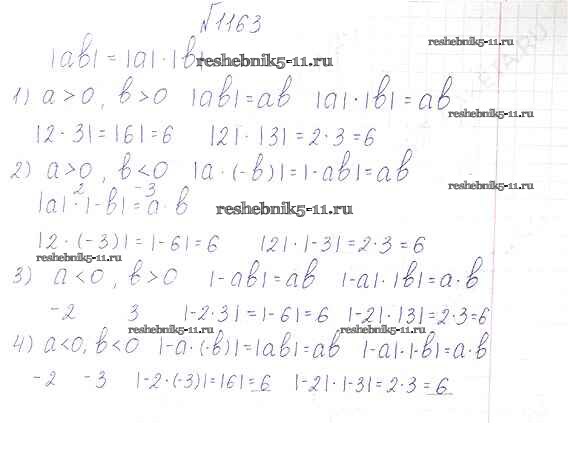 №1163
|ab| = |a| · |b|
reshebnik5-11.ru
reshebnik5-11.ru
1) a > 0, b > 0 |ab| = ab |a| · |b| = ab
reshebnik5-11.ru
|2 · 3| = |6| = 6 |2| · |3| = 2 · 3 = 6
2) a > 0, b < 0 |a · (-b)| = |-ab| = ab
2 -3
reshebnik5-11.ru
|a| · |-b| = a · b
reshebnik5-11.ru
|2 · (-3)| = |-6| = 6 |2| · |-3| = 2 · 3 = 6
reshebnik5-11.ru
3) a < 0, b > 0 |-ab| = ab |-a| · |b| = a · b
-2 3 |-2 · 3| = |-6| = 6 |-2| · |3| = 2 · 3 = 6
reshebnik5-11.ru reshebnik5-11.ru
4) a < 0, b < 0 |-a · (-b)| = |ab| = ab |-a| · |-b| = a · b
-2 -3 |-2 · (-3)| = |6| = 6 |-2| · |-3| = 2 · 3 = 6